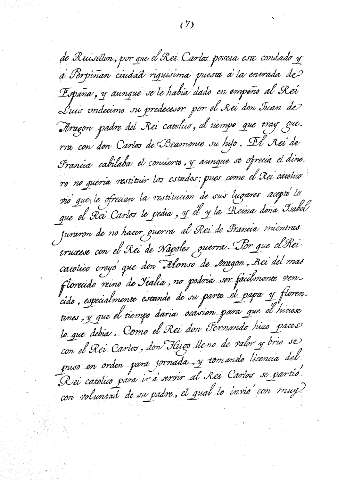 (7)
de Ruisellon, por que el Rei Carlos poseia este condado y
á Perpiñan ciudad riquisima puesta á la entrada de
España, y aunque se le habia dado en empeño al Rei
Luis undecimo su predecesor por el Rei don Juan de
Aragon padre del Rei catolico, al tiempo que tray gue-
rra con don Carlos de Beamonte su hijo. El Rei de
Francia cabilaba el concierto, y aunque se ofrecia el dine-
ro no queria restituir los estados; pues como el Rei catolico
vió que le ofrecian la restitucion de sus lugares aceptó lo
que el Rei Carlos le pedia, y él y la Reina doña Isabel
juraron de no hacer guerra al Rei de Francia mientras
trugese con el Rei de Napoles guerra. Por que el Rei
catolico creyó que don Alonso de Aragon, Rei del mas
florecido reino de Italia, no podria ser facilmente ven-
cido, especialmente estando de su parte el papa y floren-
tines, y que el tiempo daria ocasion para que el hiciese
lo que debia. Como el Rei don Fernando hizo paces
con el Rei Carlos, don Hugo lleno de valor y brio se
puso en orden para jornada, y tomando licencia del
Rei catolico para ir á servir al Rei Carlos se partió
con voluntad de su padre, el qual lo invió con muy